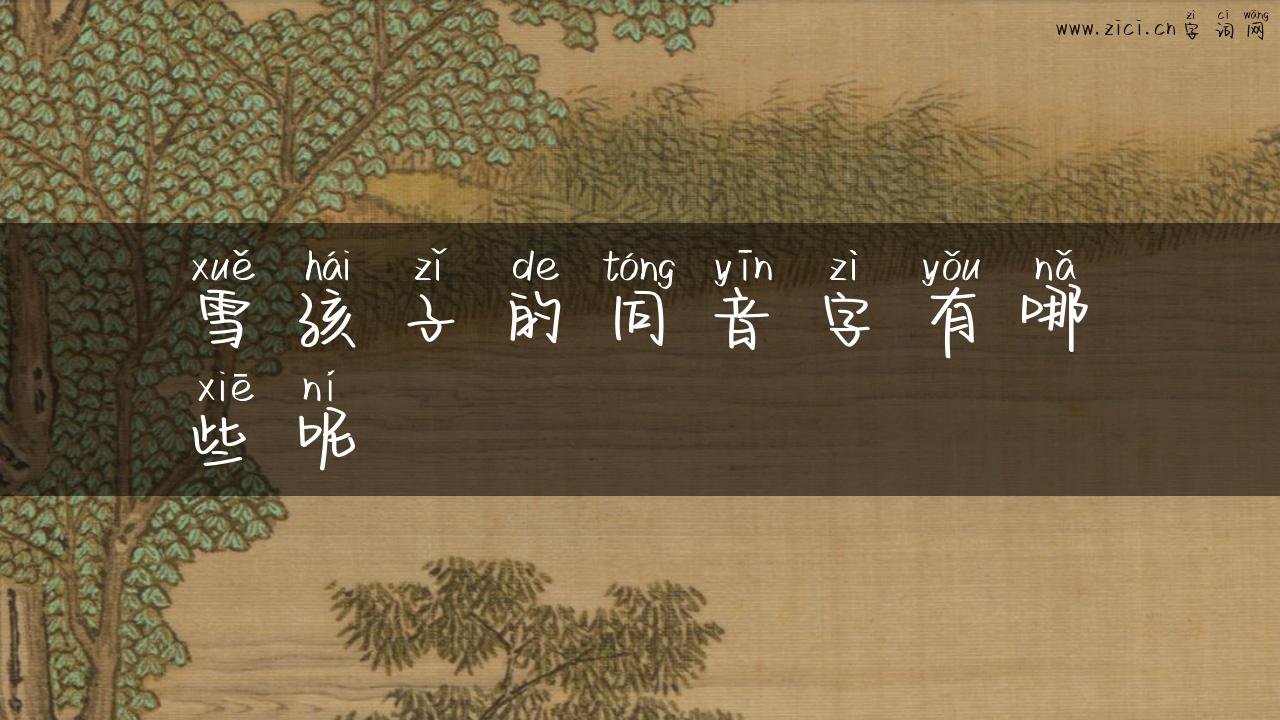 zì cí wǎng
www.zici.cn字词网
xuě hái zǐ de tóng yīn zì yǒu nǎ
雪孩子的同音字有哪
xiē ní
些呢